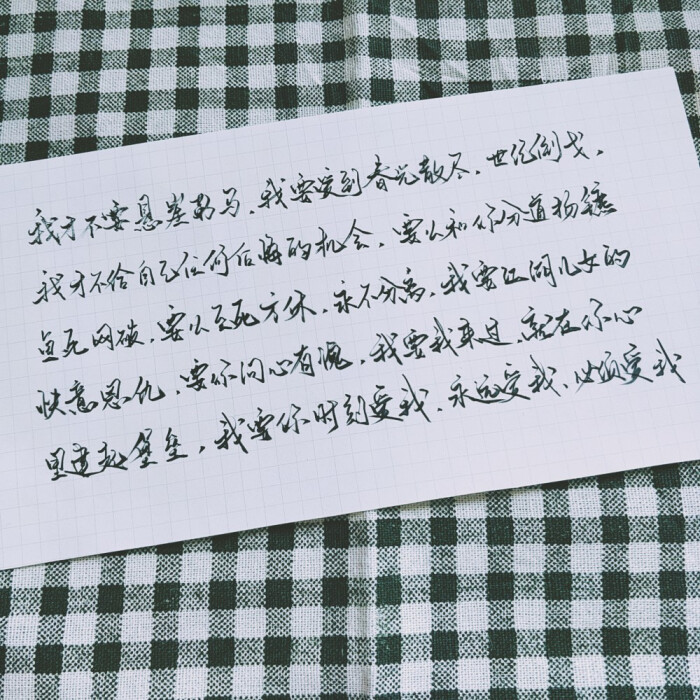 我才不要悬崖勒马，我要爱到春光散尽，世纪倒戈，
我才不给自己任何后悔的机会，要么和你分道扬镳
鱼死网破，要么至死方休，永不分离，我要江湖儿女的
快意恩仇，要你问心有愧，我要我来过，就在你心
里建起堡垒，我要你时刻爱我，永远爱我，必须爱我